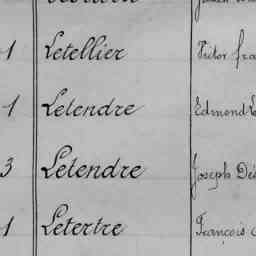 1 Letellier Victor
1 Letendre Edmond
3 Letendre Joseph
1 Letertre François